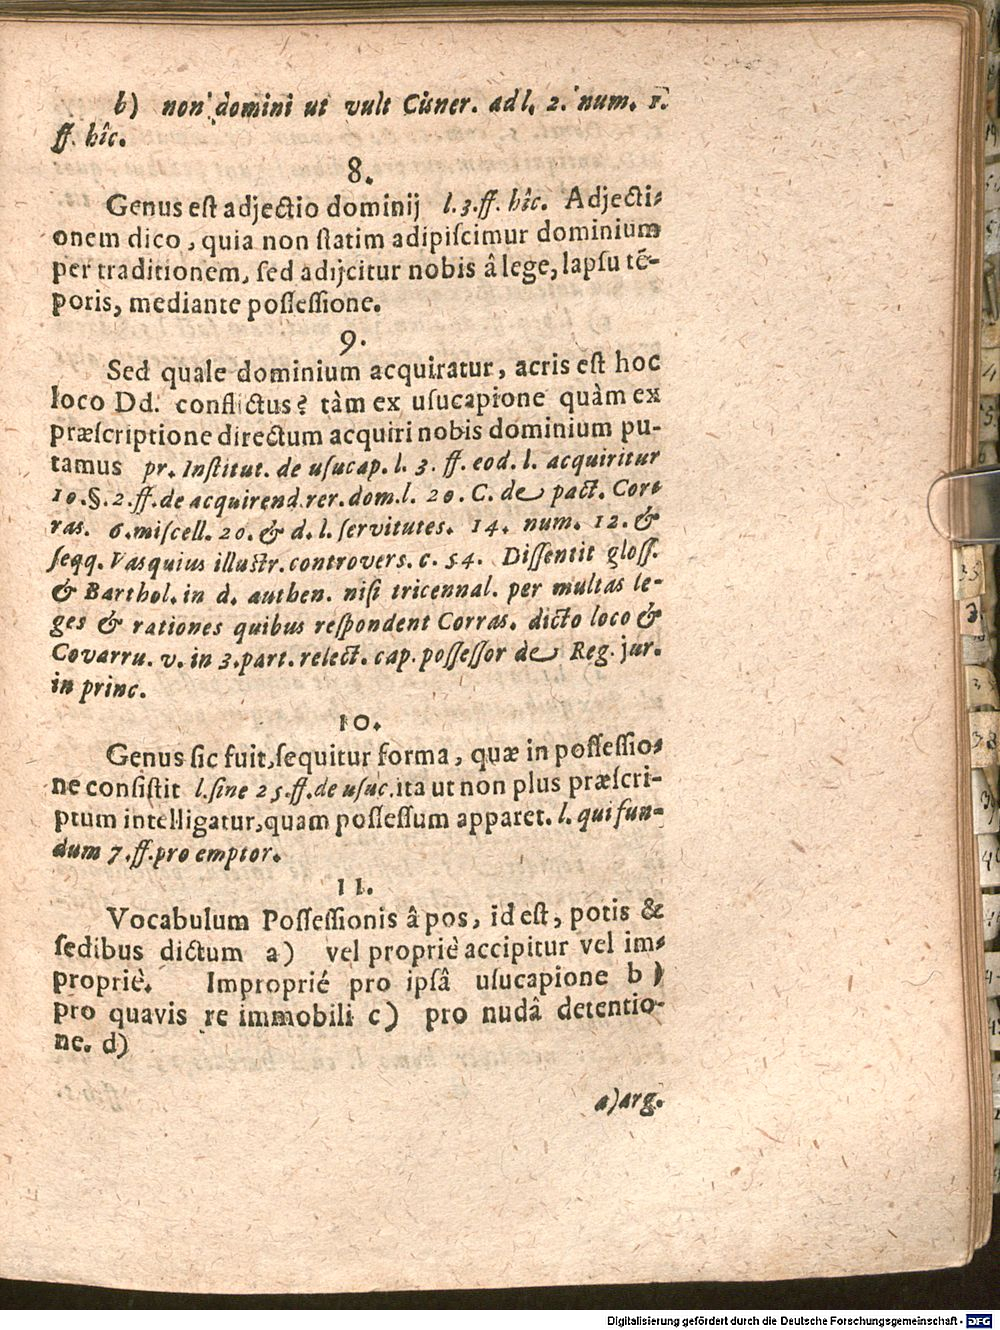 b) non domini ut vult Cisner. ad l. 2. num. 1.
ff. hîc.
8.
Genus est adjectio dominij l. 3. ff. hîc. Adjecti-
onem dico, quia non statim adipiscimur dominium
per traditionem, sed adijcitur nobis â lege, lapsu tẽ-
poris, mediante possessione.
9.
Sed quale dominium acquiratur, acris est hoc
loco Dd. conflictus? tàm ex usucapione quàm ex
præscriptione directum acquiri nobis dominium pu-
tamus pr. Institut. de usucap. l. 3. ff. eod. l. acquiritur
10. §. 2. ff. de acquirend. rer. dom. l. 20. C. de pact. Cor-
ras. 6. miscell. 20. & d. l. servitutes. 14. num. 12. &
seqq. Vasquius illustr. controvers. c. 54. Dissentit gloss.
& Barthol. in d. authen. nisi tricennal. per multas le-
ges & rationes quibus respondent Corras. dicto loco &
Covarru. v. in 3. part. relect. cap. possessor de Reg. jur.
in princ.
10.
Genus sic fuit, sequitur forma, quæ in possessio-
ne consistit l. sine 25. ff. de usuc. ita ut non plus præscri-
ptum intelligatur, quam possessum apparet. l. qui fun-
dum 7. ff. pro emptor.
11.
Vocabulum Possessionis â pos, id est, potis &
sedibus dictum a) vel propriè accipitur vel im-
propriè. Improprié pro ipsâ usucapione b)
pro quavis re immobili c) pro nudâ detentio-
ne. d)
a) arg.
Digitalisierung gefördert durch die Deutsche Forschungsgemeinschaft - DFG